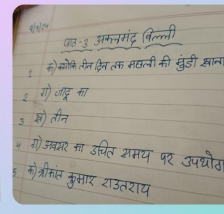 पाठ-3 अकलमंद बिल्ली
1 क) क्योंकि तीन दिन तक मछली की मुंडी खाना
2 ग) जादू का
3 ख) तीन
4 ग) अवसर का उचित समय पर उपयोग
5 क) श्रीकांत कुमार राउतराय